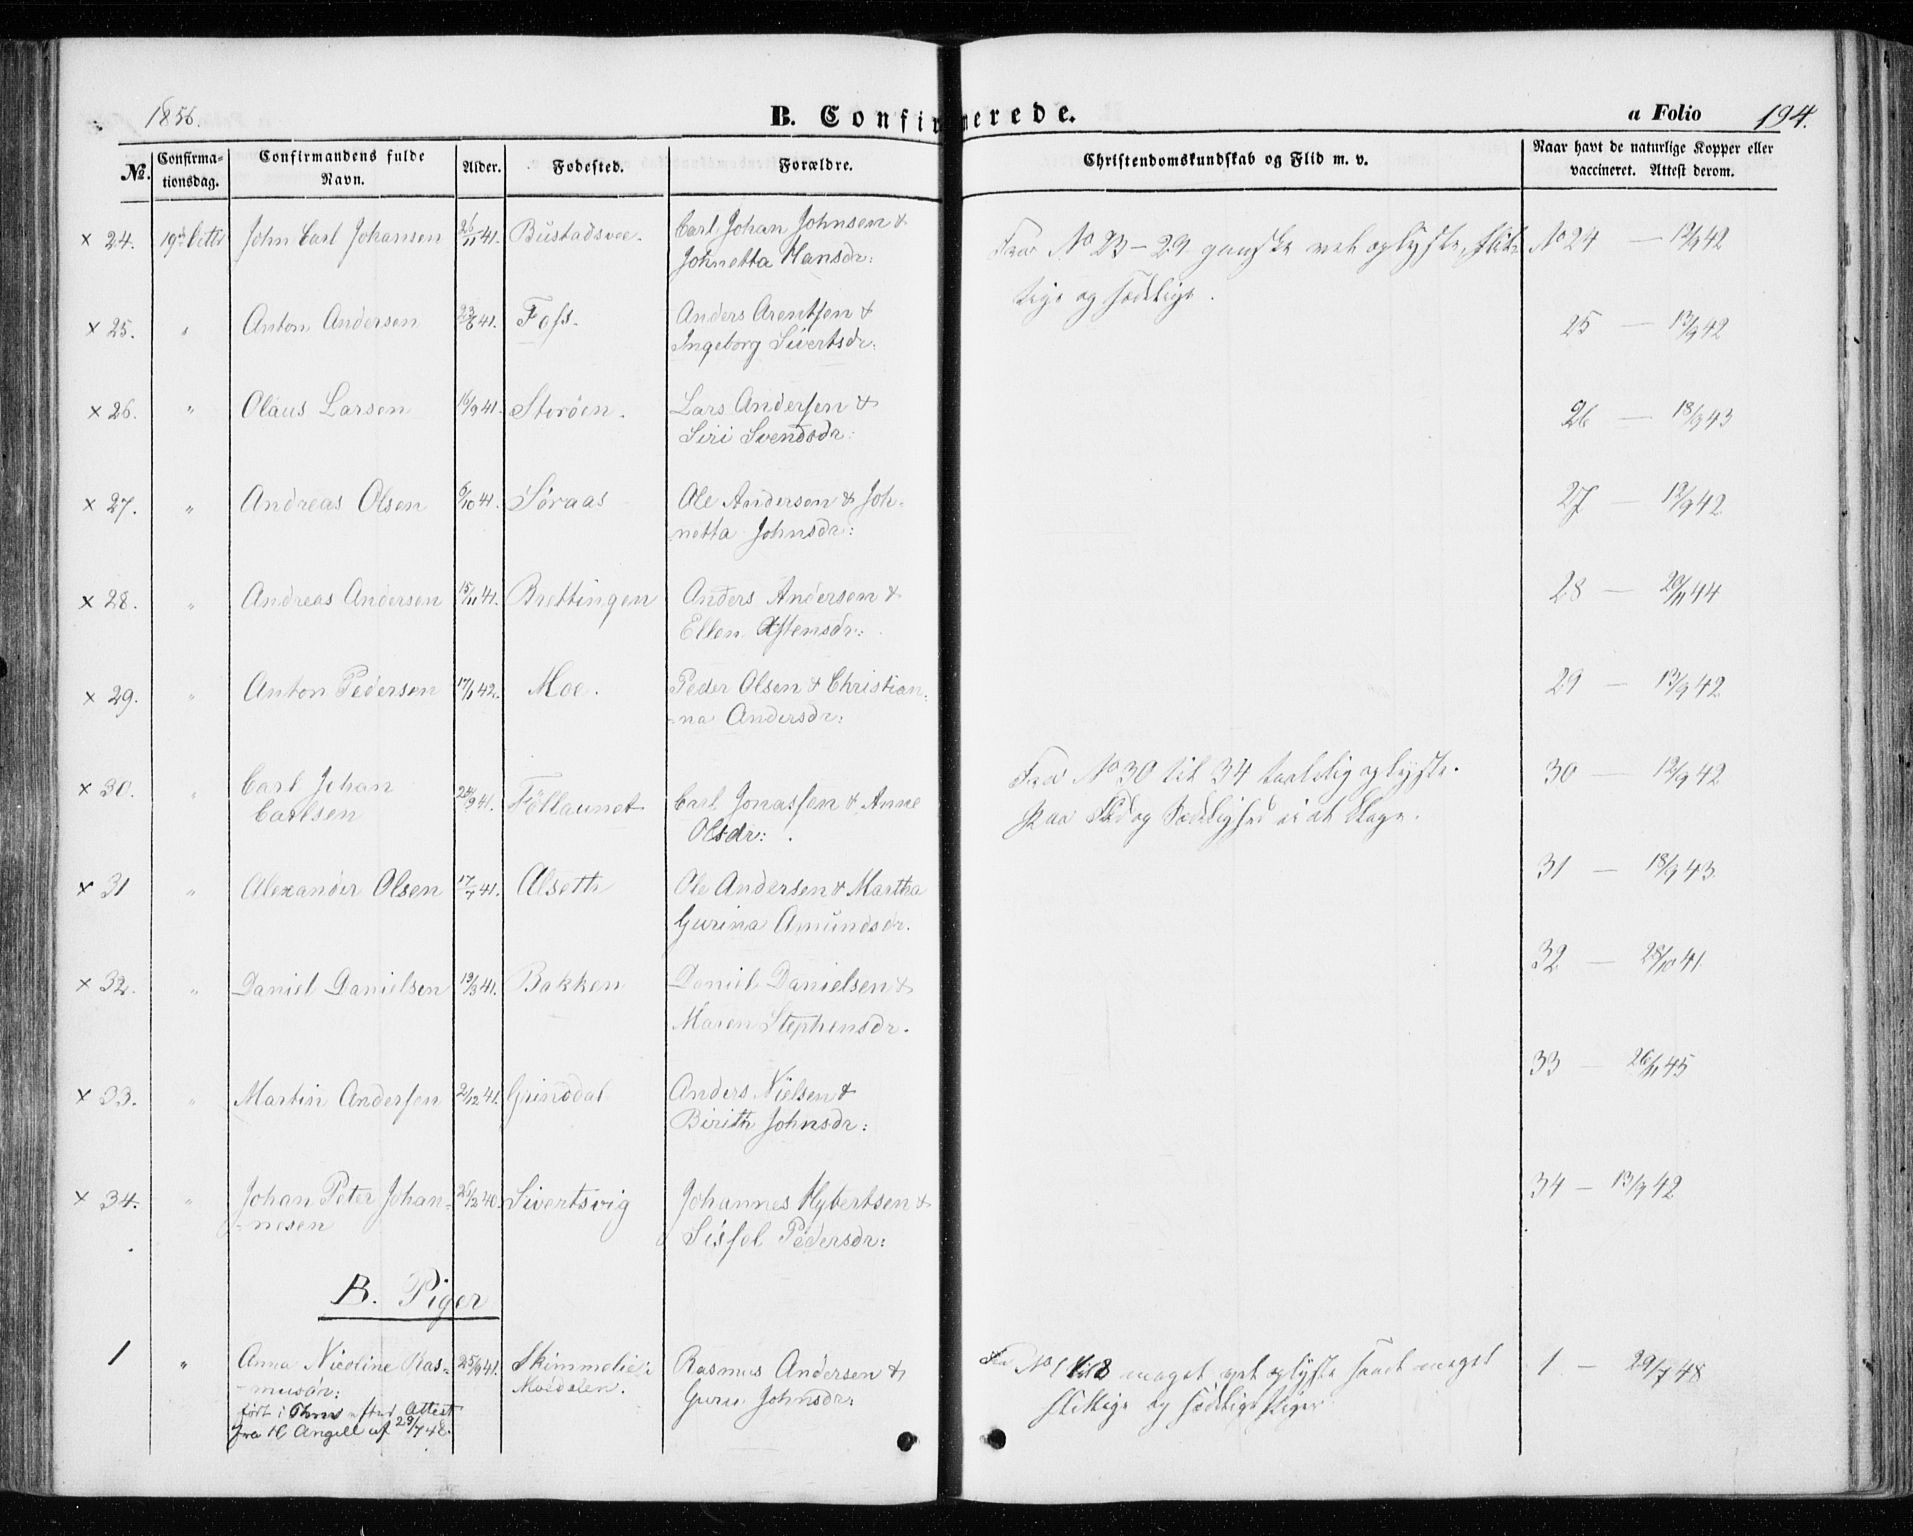 1856.
B. Confirmerede.
a Folio 194.
No. Confirmationsdag. Confirmandens fulde Navn. Alder. Fødested. Forældre. Christendomskundskab og Flid m. v. Naar havt de naturlige Kopper eller vaccineret. Attest derom.
× 24. 19de Octbr John Carl Johansen 26/11 41. Bustadsvee. Carl Johan Johnsen &
Johnetta Hansdr:
Fra No 23 – 29 ganske vel oplyste, flit-
tige og sædelige.
No 24 — 12/9 42
× 25. " Anton Andersen 23/6 41. Foss. Anders Arentsen &
Ingeborg Sivertsdr:
25 — 13/9 42
× 26. " Olaus Larsen 16/9 41. Storöen. Lars Andersen &
Siri Svendsdr:
26 — 18/9 43
× 27. " Andreas Olsen 6/10 41. Söraas Ole Andersen & Joh-
netta Johnsdr:
27 — 12/9 42
× 28. " Andreas Andersen 15/11 41. Brettingen Anders Andersen &
Ellen Estensdr:
28 — 20/11 44
× 29. " Anton Pedersen 17/1 42. Moe. Peder Olsen & Christian-
-na Andersdr:
29 — 13/9 42
× 30. " Carl Johan
Carlsen
24/9 41. Föllaunet Carl Jonassen & Anne
Olsdr:
Fra No 30 til 34 taalelig oplyste.
Paa Flid og Sædelighed er at klage.
30 — 12/9 42
× 31 " Alexander Olsen 17/7 41. Alseth Ole Andersen & Martha
Gurina Amundsdr.
31 — 18/9 43
× 32. " Daniel Danielsen 19/3 41. Bakken Daniel Danielsen &
Maren Stephensdr.
32 — 28/10 41.
× 33. " Martin Andersen 2/12 41. Grinddal Anders Nielsen &
Birith Johnsdr:
33 — 26/11 45
× 34. " Johan Peter Johan-
-nesen
26/12 40. Sivertsvig Johannes Hybertsen &
Sisfel Pedersdr:
34 — 13/9 42
B. Piger
1 " Anna Nicoline Ras-
-musdr:
ført i Thm efter Attest
fra H Angell af 29/7 48.
25/9 41. Skimmelie i
Moldalen.
Rasmus Andersen &
Guru Johnsdr:
Fra No 1 til 8 meget vel oplyste samt meget
flittige og sædelige Piger
1 — 29/7 48